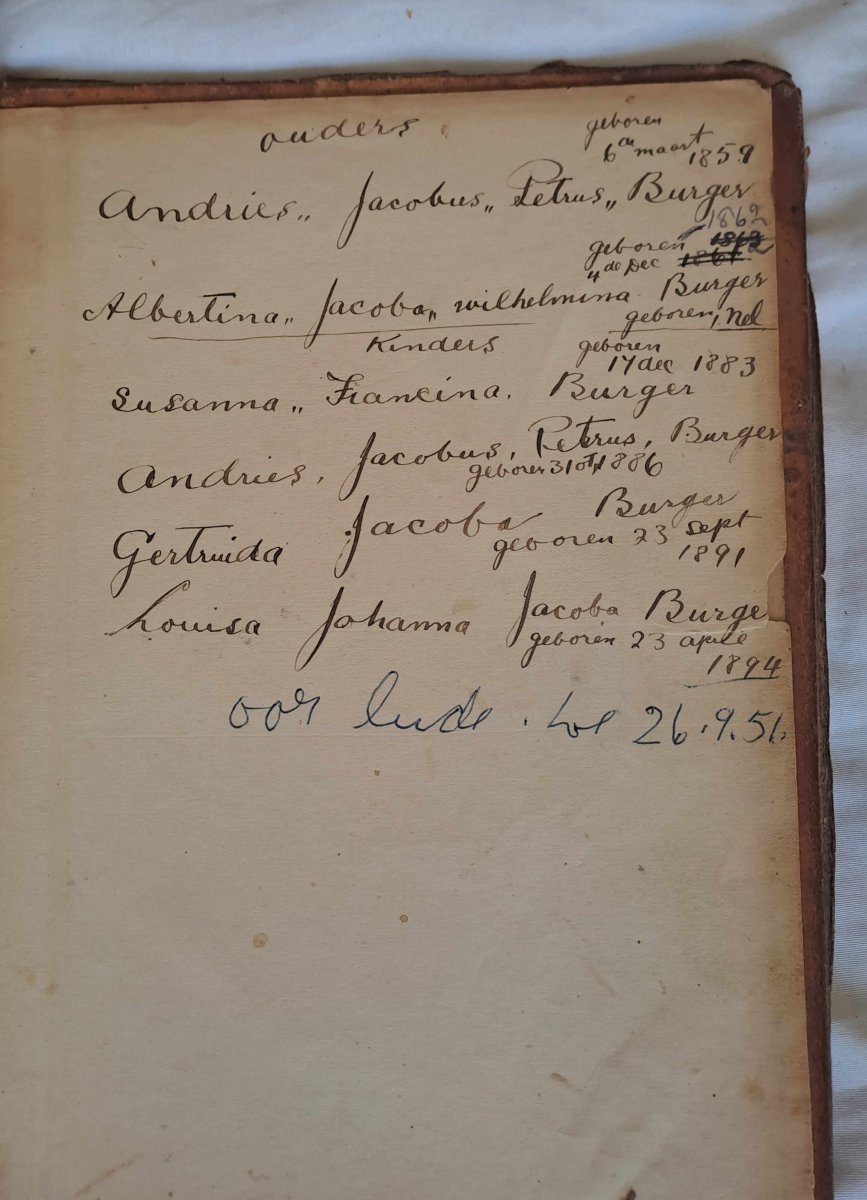 ouders
geboren
6de maart 1859
Andries,, Jacobus,, Petrus,, Burger
1862
geboren
4de Dec 1861
Albertina,, Jacoba,, wilhelmina Burger
geboren, Nel
Kinders
geboren
17 dec 1883
Susanna,, Francina. Burger
Andries, Jacobus, Petrus, Burger
geboren 31 1886
Gertruida Jacoba Burger
geboren 23 sept
1891
Louisa Johanna Jacoba Burge
geboren 23 aprile
1894
oor 26.9.51.